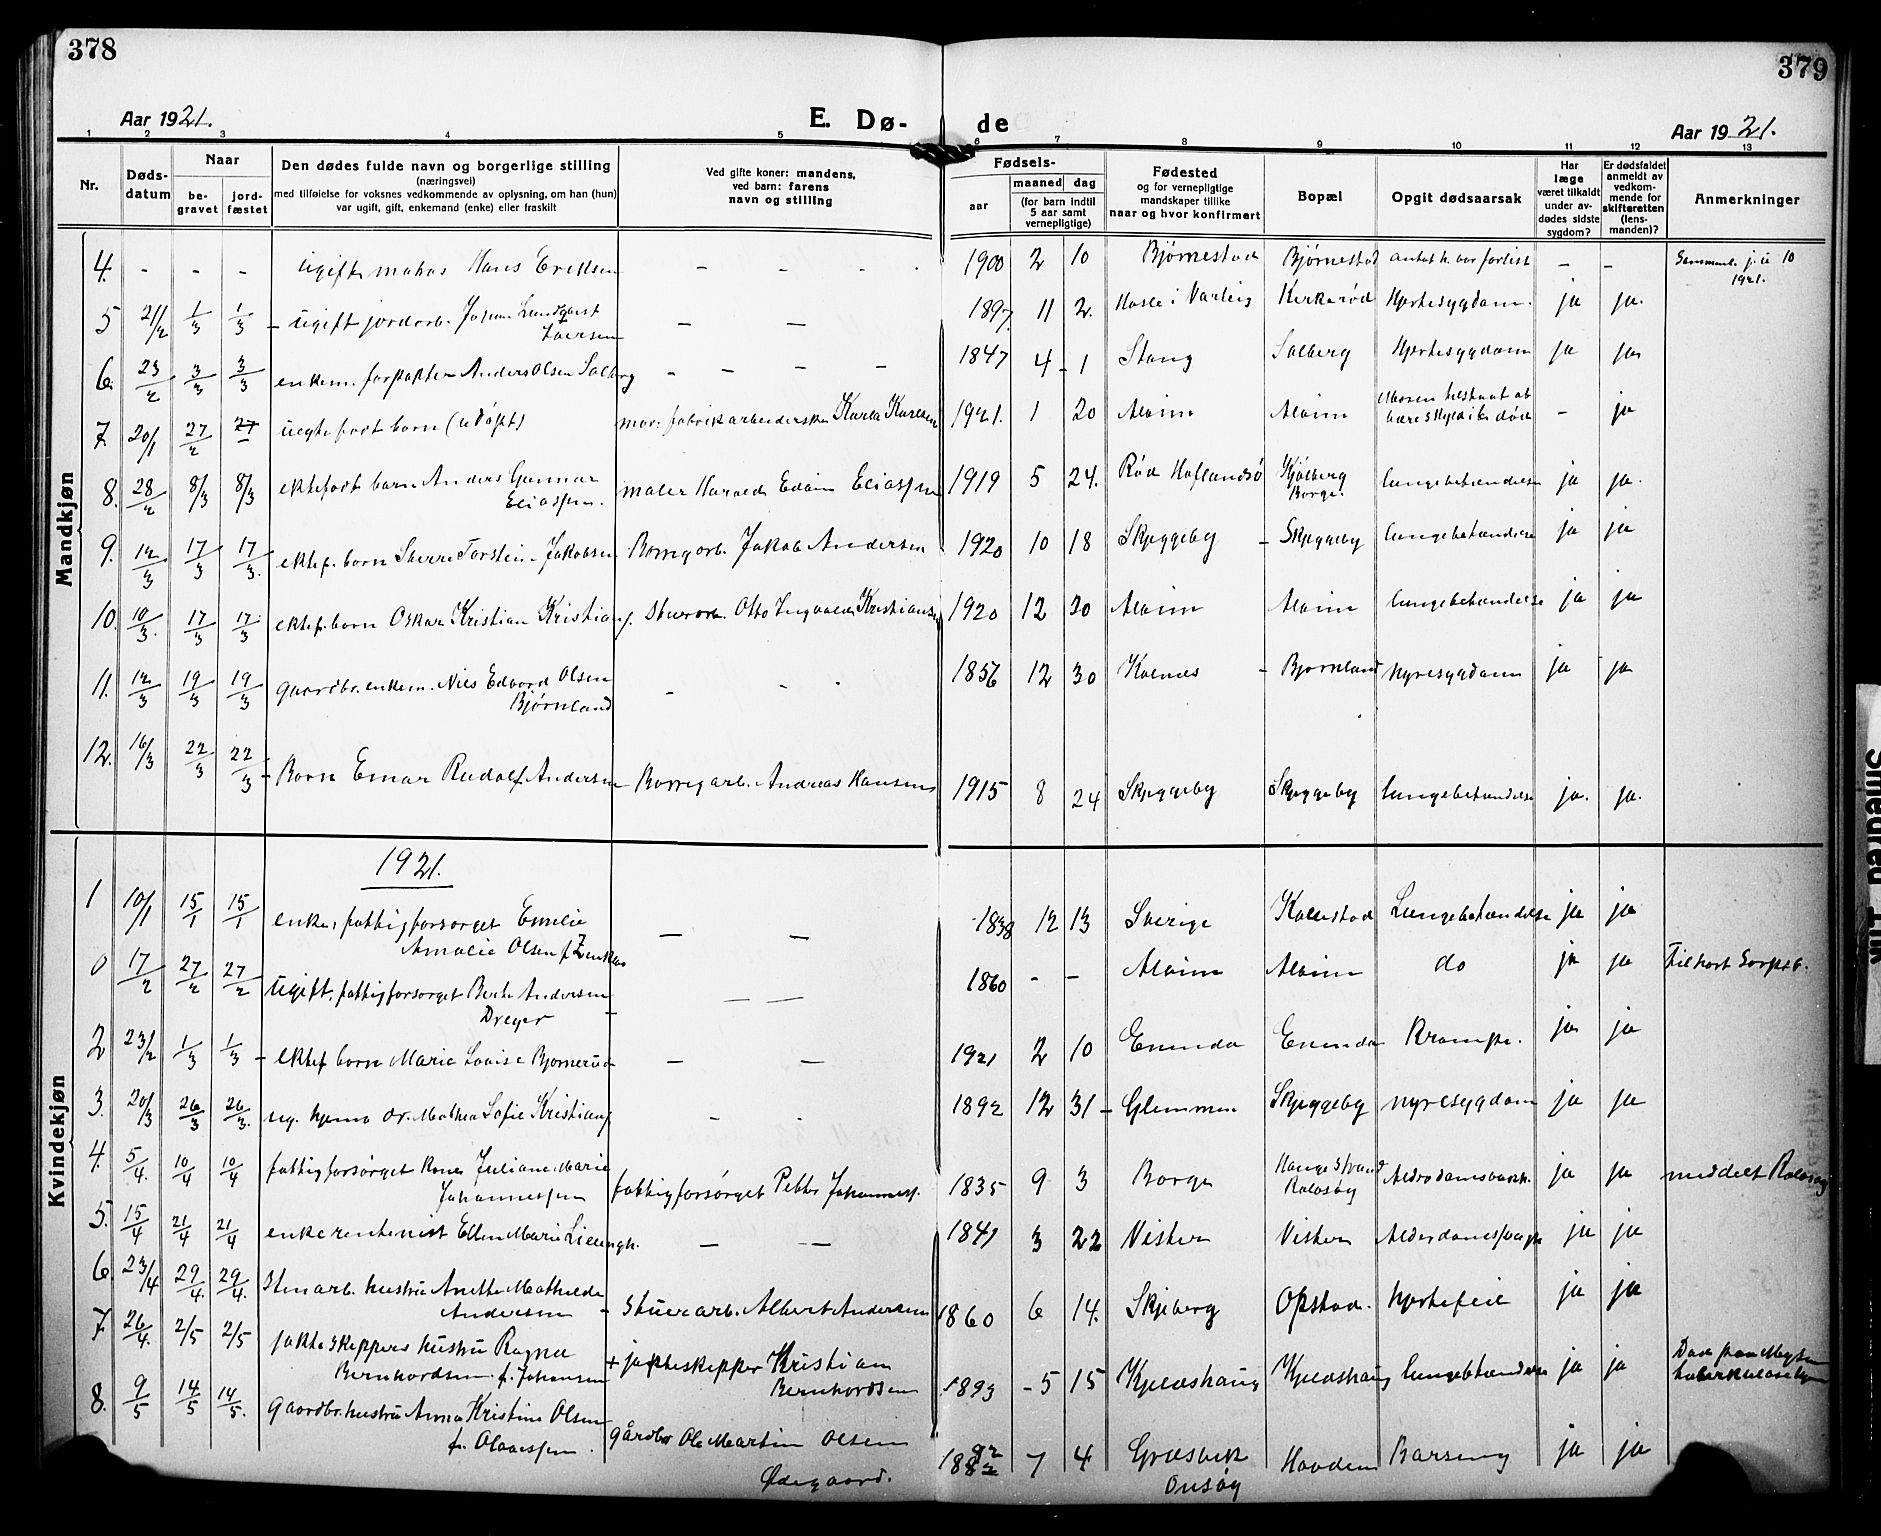 378
379
Aar 1921.
E. Dø-
de
Aar 1921.
1 2 3 4 5 6 7 8 9 10 11 12 13
Nr.
Døds-
datum
Naar
be-
gravet
jord-
fæstet
Den dødes fulde navn og borgerlige stilling
(næringsvei)
med tilføielse for voksnes vedkommende av oplysning, om han (hun)
var ugift, gift, enkemand (enke) eller fraskilt
Ved gifte koner: mandens,
ved barn: farens
navn og stilling
Fødsels-
aar
maaned dag
(for barn indtil
5 aar samt
vernepligtige)
Fødested
og for vernepligtige
mandskaper tillike
naar og hvor konfirmert
Bopæl
Opgit dødsaarsak
Har
læge
været tilkaldt
under av-
dødes sidste
sygdom?
Er dødsfaldet
anmeldt av
vedkom-
mende for
skifteretten
(lens-
manden)?
Anmerkninger
Mandkjøn
4. - - - ugift matros Hans Eriksen - - - 1900 2 10 Bjørnestad Bjørnestad antat h. var forlist - - 10
1921.
5 21/2 1/3 1/3 - ugift jordarb. Johan Lundqvist
Iversen - - 1897 11 2. Hasle i Varteig Kirkerød Hjertesygdom. ja ja.
6. 23/2 3/3 3/3 enkem. forpakter Anders Olsen Solberg - - - - 1847 4 - 1 Stang Solberg Hjertesygdom ja ja
7. 20/1 27/2 27 uegte født barn (udøpt) mor: fabrikarbeiderske Karla Karlsen 1921. 1 20 Alvim Alvim Moren tilstaat at
være skyld i dets død - ja
8. 28/2 8/3 8/3 ektefødt barn Anders Gunnar
Eliassen. maler Harald Edvin Eliassen 1919 5 24. Rød Haflandsø Kjølberg
Borge. lungebetændelse ja ja.
9. 12/3 17/3 17/3. ektef. barn Sverre Torstein Jakobsen Borregarb. Jakob Andersen 1920 10 18 Skjeggeby - Skjeggeby lungebetændelse ja ja
10. 10/3. 17/3 17/3 ektef. barn Oskar Kristian Kristians. Stuerarb. Otto Ingvald Kristiansen 1920 12 20 Alvim Alvim lungebetændelse ja ja
11. 12/3 19/3 19/3 gaardbr. enkem. Nils Edvard Olsen
Bjørnland - - - 1856 12 30 Kalnes - Bjørnland nyresygdom ja ja
12. 16/3 22/3 22/3 - Barn Einar Rudolf Andersen Borregarb. Andreas Hansen 1915 8 24 Skjeggeby Skjeggeby lungebetændelse ja. ja.
Kvindekjøn
1921.
1 10/1 15/1 15/1 enke, fattigforsørget Emilie
Amalie Olsen f. - - 1838 12 13 Sverige Kallestad Lungebetændelse ja ja
0 17/2 27/2 27/2 ugift, fattigforsørget Berte Andersen
Dreyer - - 1860 - - Alvim Alvim do ja ja Tilhørt Sarpsb.
2 23/2 1/3 1/3 - ektef barn Marie Lovise Bjørnerud - - 1921 2 10 Enenda Enenda Krampe. ja ja
3. 20/3 26/3 26/3. ug. hjemmev. Mathea Sofie Kristians. - - 1892 12 31 - Glemmen Skjeggeby nyresygdom ja ja
4. 5/4. 10/4 10/4 fattigforsørget kone Juliane Marie
Johannessen fattigforsørget Petter Johanness. 1835 9 3 Borge Haugestrand
Rolvsøy Alderdomssvækk. ja ja meddelt Rolvsøy
5. 15/4 21/4 21/4 enke rentenist Ellen Marie - - 1841 3 22 Vister Vister Alderdomssvagh. ja ja
6. 23/4 29/4. 29/4. Stuerarb. hustru Anette Mathilde
Andersen - Stuerarb. Albert Andersen 1860 6 14. Skjeberg Opstad. hjertefeil ja ja
7. 26/4. 2/5 2/5 jakteskippers hustru Ragna
Bernhardsen f. Johansen + jakteskipper Kristian
Bernhardsen 1893 - 5 15 Kjelshaug Kjelshaug lungebetændelse ja ja
8. 9/5 14/5 14/5. gaardbr. hustru Anna Kristine Olsen
f. Olavessen. gårdbr Ole Martin Olsen
Ødegaard. 1882 7 4 Græsvik
Onsøy Hauden Barseng ja ja